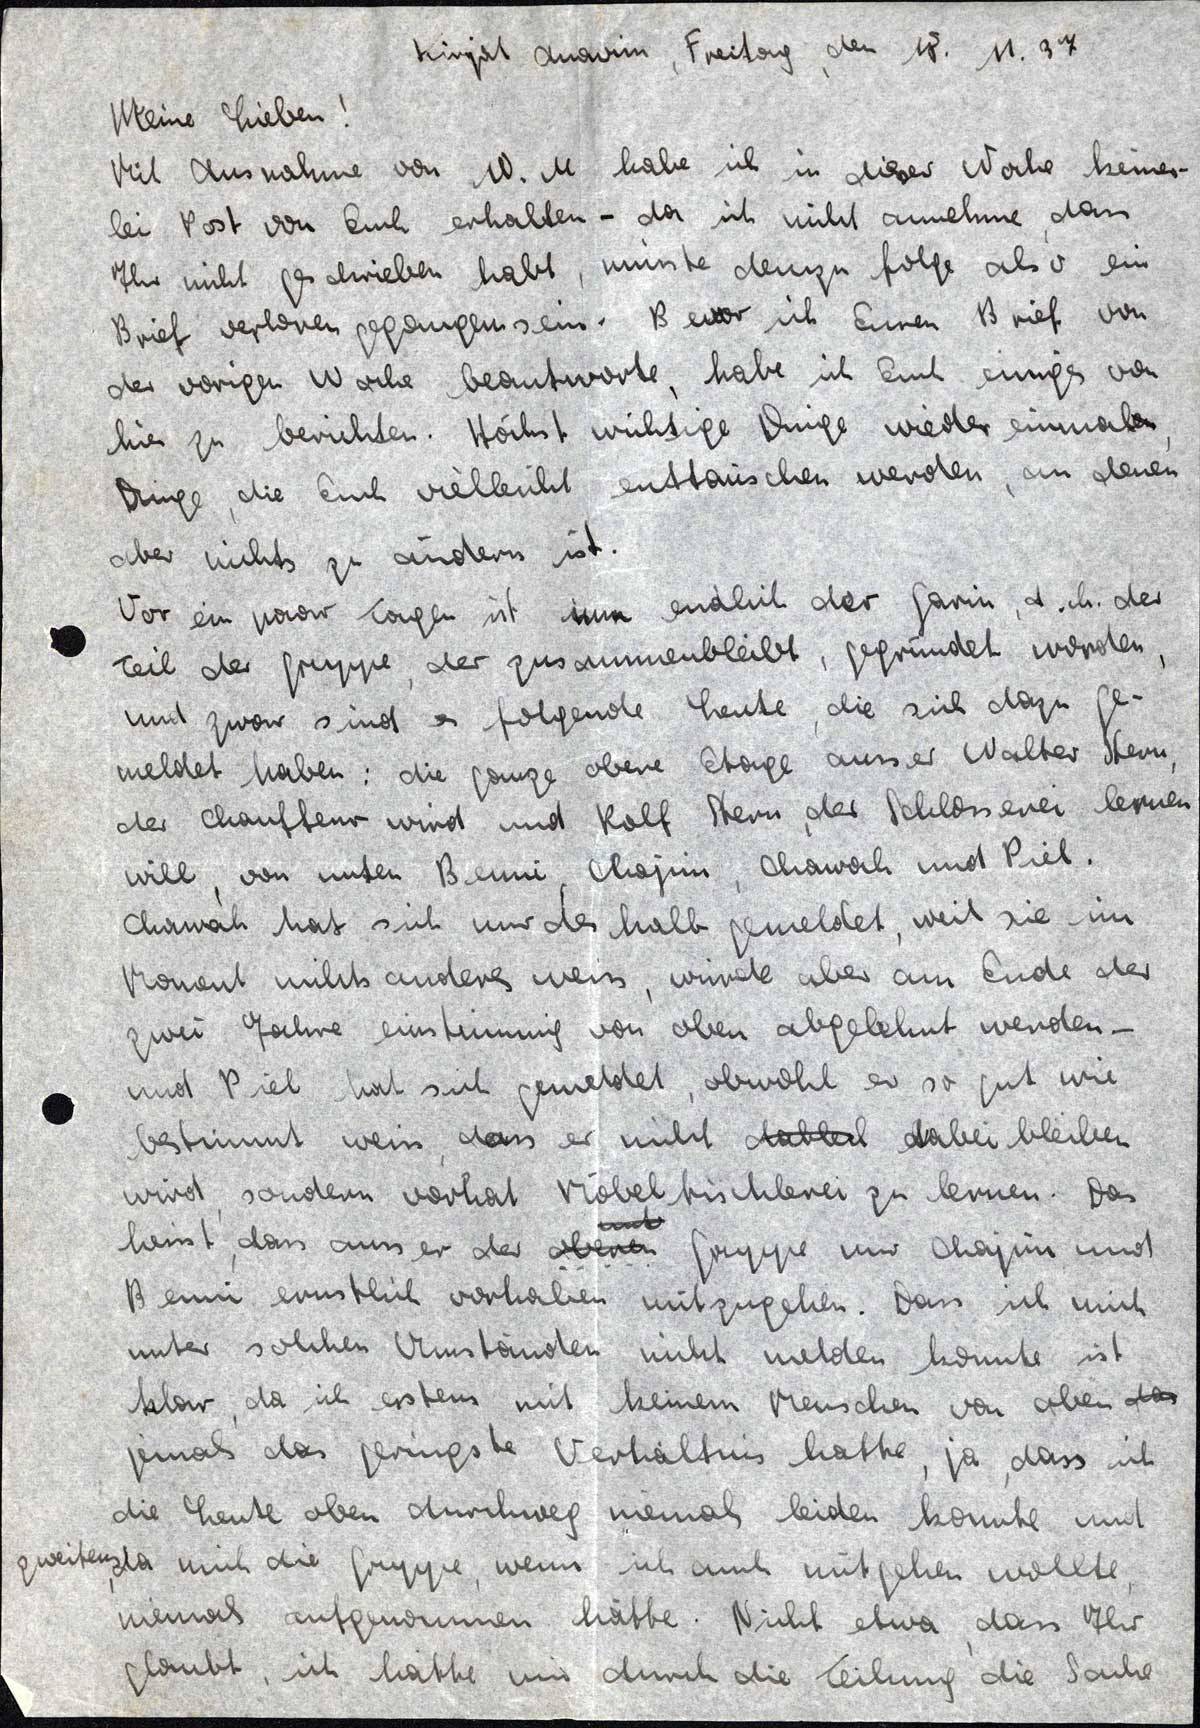 Kirjat Anavim, Freitag, den 18. 11. 37
Meine Lieben!
Mit Ausnahme von W. M habe ich in dieser Woche keiner-
lei Post von Euch erhalten - da ich nicht annehme, dass
Ihr nicht geschrieben habt, müsste demzufolge also ein
Brief verloren gegangen sein. Bevor ich Euren Brief von
der vorigen Woche beantworte, habe ich Euch einiges von
hier zu berichten. Höchst wichtige Dinge wieder einmal,
Dinge, die Euch vielleicht enttäuschen werden, an denen
aber nichts zu ändern ist.
Vor ein paar Tagen ist nun endlich der Garin, d.h. der
Teil der Gruppe, der zusammenbleibt, gegründet worden,
und zwar sind es folgende Leute, die sich dazu ge-
meldet haben: die ganze obere Etage ausser Walter Stern,
der Chauffeur wird und Rolf Stern, der Schlosserei lernen
will, von unten Benni, Chajim, Chawah und Piel.
Chawah hat sich nur deshalb gemeldet, weil sie im
Moment nichts anderes weiss, würde aber am Ende der
zwei Jahre einstimmig von oben abgelehnt werden -
und Piel hat sich gemeldet, obwohl er so gut wie
bestimmt weiss, dass er nicht dabei bleiben
wird, sondern vorhat Möbeltischlerei zu lernen. Das
heisst, dass ausser der oberen Gruppe nur Chajim und
Benni ernstlich vorhaben mitzugehen. Dass ich mich
unter solchen Umständen nicht melden konnte ist
klar, da ich erstens mit keinem Menschen von oben das
jemals das geringste Verhältnis hatte, ja, dass ich
die Leute oben durchweg niemals leiden konnte und
zweitens, da mich die Gruppe, wenn ich auch mitgehen wollte,
niemals aufgenommen hätte. Nicht etwa, dass Ihr
glaubt, ich hätte mir durch die Teilung die Sache